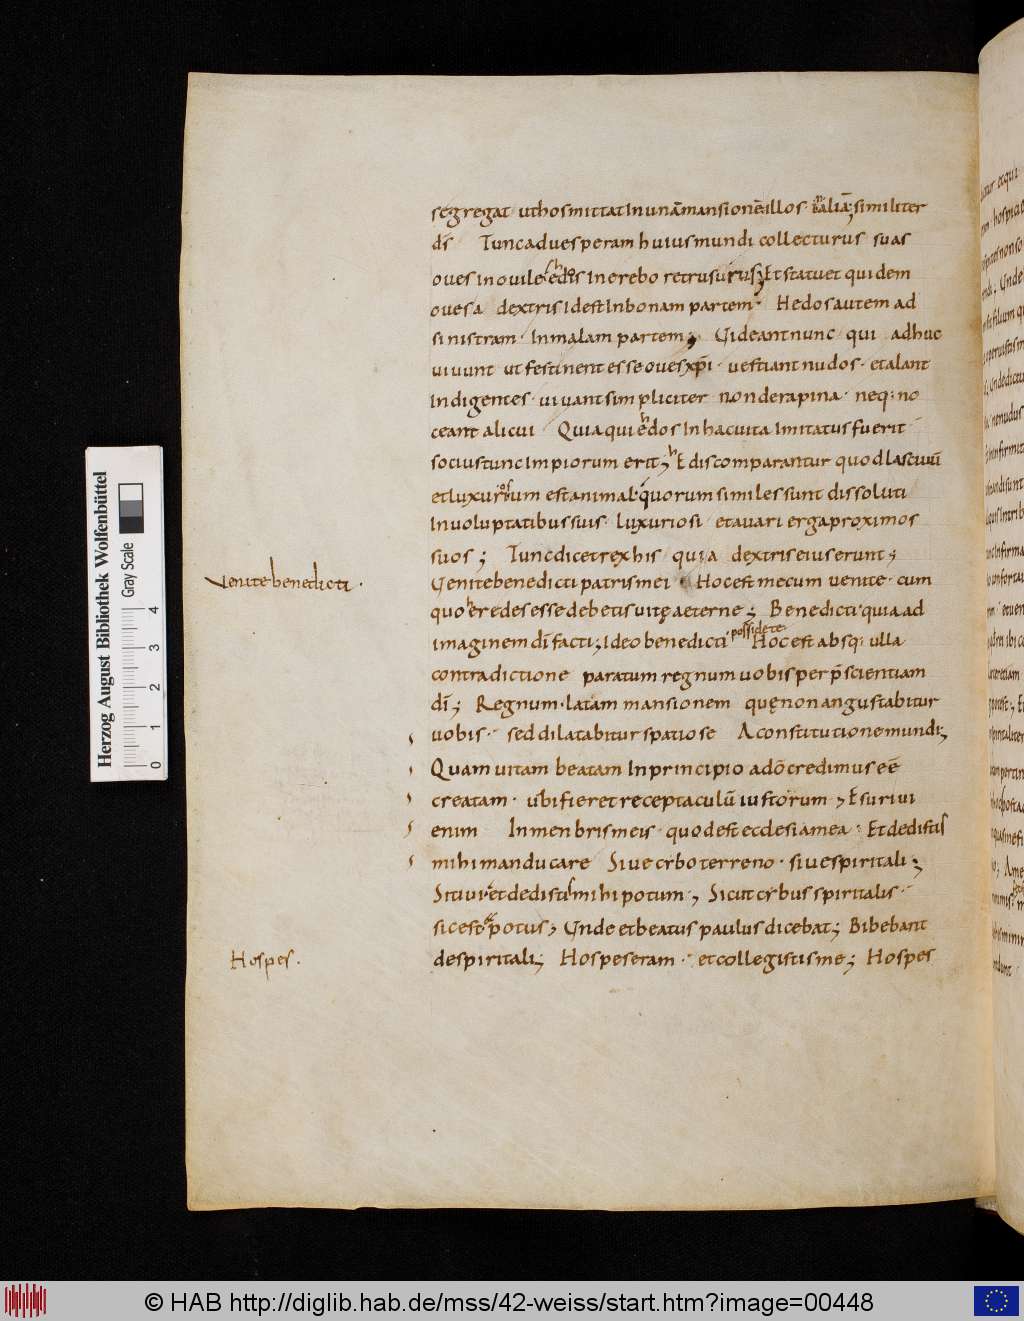 segregat ut hos mittat In unā mansionē illos in aliā; similiter
dr̄ Tunc ad uesperam huius mundi collecturus suas
oues in ouile hedos In erebo retrusurus; Et statuet quidem
oues a dextris Id est In bonam partem· Hedos autem ad
sinistram· In malam partem; Uideant nunc qui adhuc
uiuunt ut festinent esse oues xp̄i· uestiant nudos· et alant
Indigentes· uiuant simpliciter non de rapina· neq: no
ceant alicui Quia qui hedos In hac uita Imitatus fuerit·
socius tunc Impiorum erit; hEdis comparantur quod lasciuū
et luxuriosum est animal· quorum similes sunt dissoluti
In uoluptatibus suis· luxuriosi et auari erga proximos
suos; Tunc dicet rex his qui a dextris eius erunt;
Uenite benedicti patris mei Hoc est mecum uenite· cum
quo heredes esse debetis uitę aeterne; Benedicti· quia ad
imaginem dī facti; Ideo benedicti possidete Hoc est absq: ulla
contradictione paratum regnum uobis per p̄scientiam
dī; Regnum· latam mansionem quę non angustabitur
uobis· sed dilatabitur spatiose A constitutione mundi;
Quam uitam beatam In principio a dō credimus eē
creatam· ubi fieret receptaculū iustorum; Esuriui
enim In menbris meis· quod est ecclesia mea· Et dedistis
mihi manducare Siue cybo terreno· siue spiritali;
Sitiui et dedistis mihi potum; Sicut cybus spiritalis·
sic est potus; Unde et beatus paulus dicebat; Bibebant
de spiritali; Hospes eram· et collegistis me; Hospes
Uenite benedicti·
Hospes·
Herzog August Bibliothek Wolfenbüttel
Gray Scale
0 1 2 3 4
© HAB http://diglib.hab.de/mss/42-weiss/start.htm?image=00448